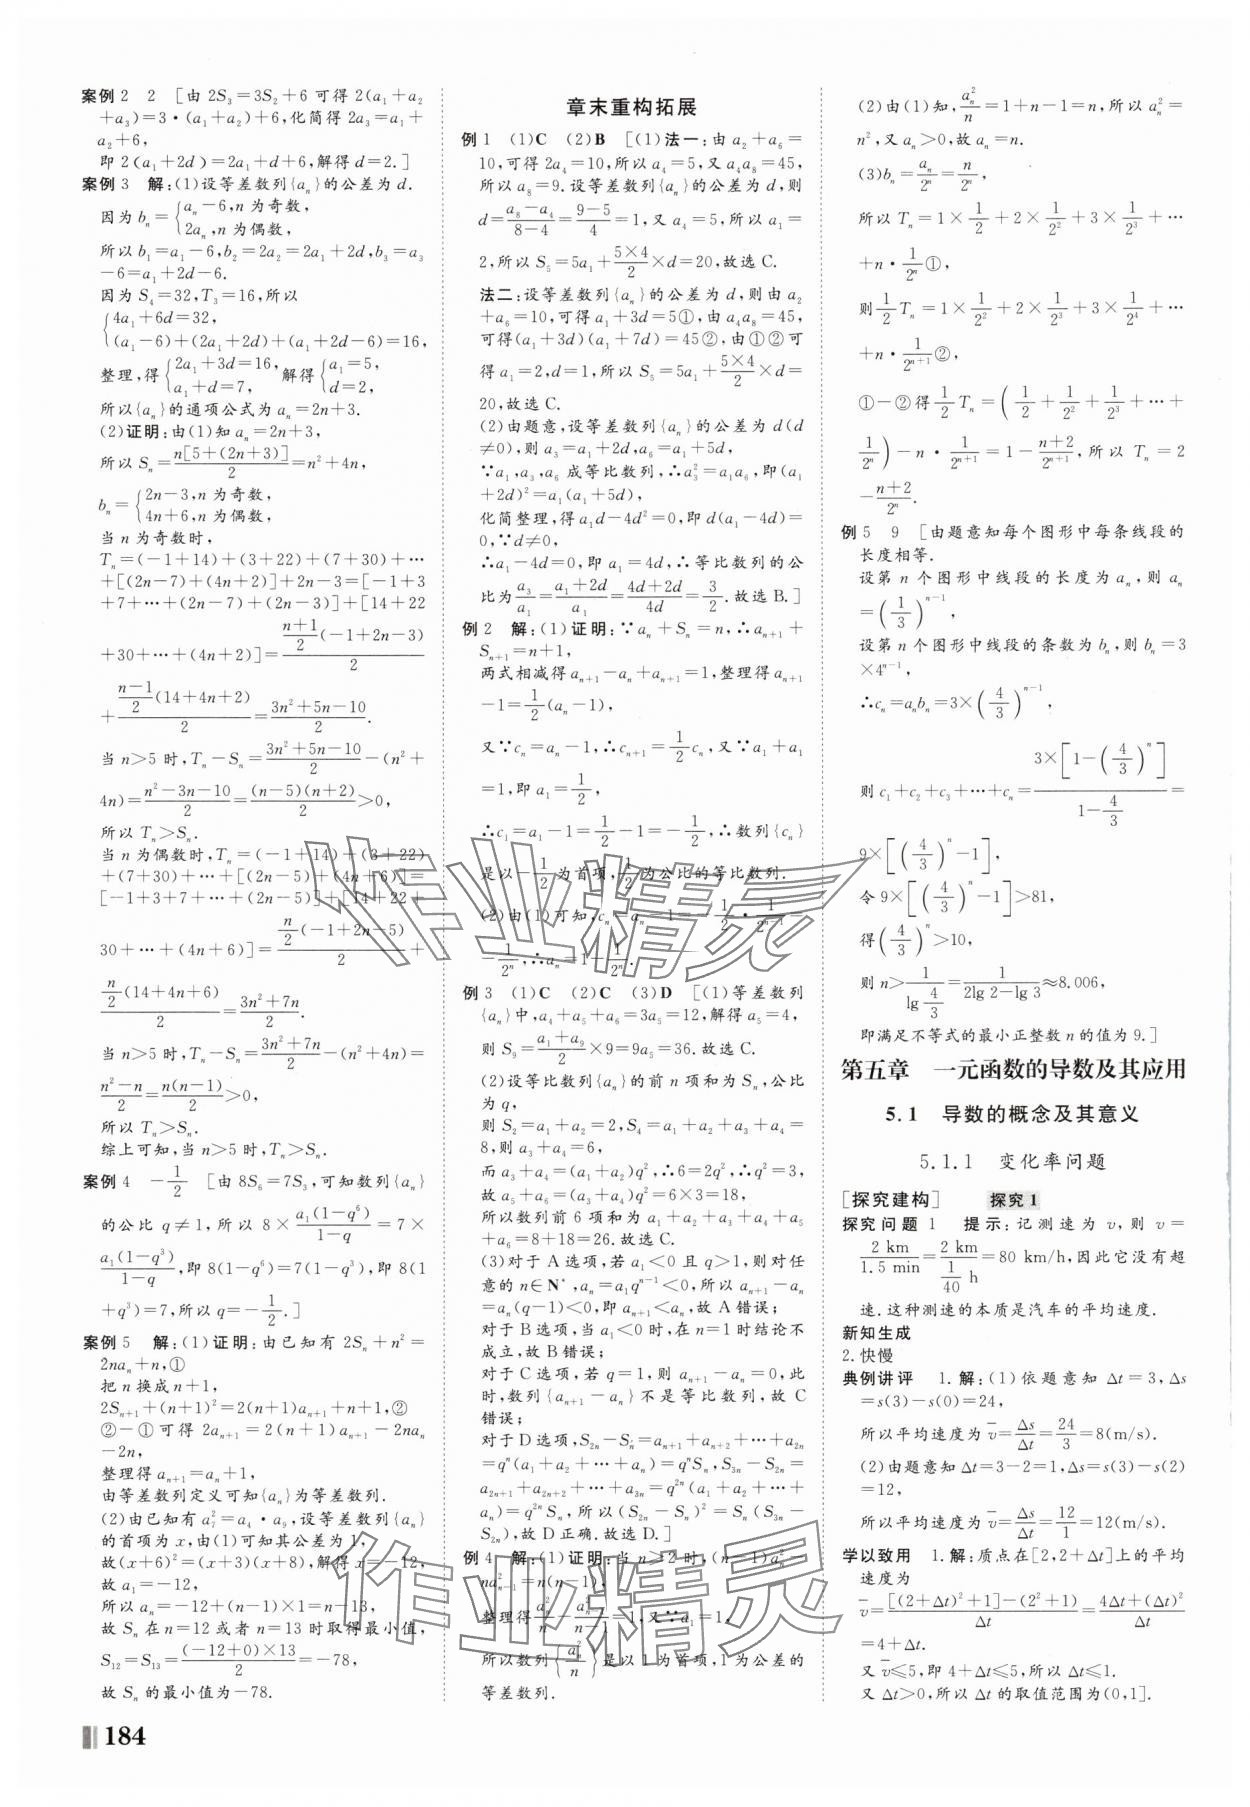 案例2　2　[由 2S₃=3S₂+6 可得 2(a₁+a₂
+a₃)=3·(a₁+a₂)+6,化简得 2a₃=a₁+
a₂+6,
即 2(a₁+2d)=2a₁+d+6,解得 d=2.]
案例3　解:(1)设等差数列{aₙ}的公差为 d.
因为 bₙ={aₙ-6,n 为奇数,
2aₙ,n 为偶数,
所以 b₁=a₁-6,b₂=2a₂=2a₁+2d,b₃=a₃
-6=a₁+2d-6.
因为 S₄=32,T₃=16,所以
{4a₁+6d=32,
(a₁-6)+(2a₁+2d)+(a₁+2d-6)=16,
整理,得{2a₁+3d=16, a₁+d=7, 解得{a₁=5, d=2.
所以{aₙ}的通项公式为 aₙ=2n+3.
(2)证明:由(1)知 aₙ=2n+3,
所以 Sₙ=n[5+(2n+3)]/2=n²+4n,
bₙ={2n-3,n 为奇数,
4n+6,n 为偶数,
当 n 为奇数时,
Tₙ=(-1+14)+(3+22)+(7+30)+…
+[(2n-7)+(4n+2)]+2n-3=[-1+3
+7+…+(2n-7)+(2n-3)]+[14+22
+30+…+(4n+2)]=(n+1)/2(-1+2n-3)/2
+(n-1)/2(14+4n+2)/2=(3n²+5n-10)/2.
当 n>5 时,Tₙ-Sₙ=(3n²+5n-10)/2-(n²+
4n)=(n²-3n-10)/2=(n-5)(n+2)/2>0,
所以 Tₙ>Sₙ.
当 n 为偶数时,Tₙ=(-1+14)+(3+22)
+(7+30)+…+[(2n-5)+(4n+6)]=
[-1+3+7+…+(2n-5)]+[14+22+
30+…+(4n+6)]=n/2(-1+2n-5)/2+
n/2(14+4n+6)/2=(3n²+7n)/2.
当 n>5 时,Tₙ-Sₙ=(3n²+7n)/2-(n²+4n)=
(n²-n)/2=n(n-1)/2>0,
所以 Tₙ>Sₙ.
综上可知,当 n>5 时,Tₙ>Sₙ.
案例4　-1/2　[由 8S₆=7S₃,可知数列{aₙ}
的公比 q≠1,所以 8×a₁(1-q⁶)/(1-q)=7×
a₁(1-q³)/(1-q),即 8(1-q⁶)=7(1-q³),即 8(1
+q³)=7,所以 q=-1/2.]
案例5　解:(1)证明:由已知有 2Sₙ+n²=
2naₙ+n,①
把 n 换成 n+1,
2Sₙ₊₁+(n+1)²=2(n+1)aₙ₊₁+n+1,②
②-①可得 2aₙ₊₁=2(n+1)aₙ₊₁-2naₙ
-2n,
整理得 aₙ₊₁=aₙ+1,
由等差数列定义可知{aₙ}为等差数列.
(2)由已知有 a₇²=a₄·a₉,设等差数列{aₙ}
的首项为 x,由(1)可知其公差为 1,
故(x+6)²=(x+3)(x+8),解得 x=-12,
故 a₁=-12,
所以 aₙ=-12+(n-1)×1=n-13,
故 Sₙ 在 n=12 或者 n=13 时取得最小值,
S₁₂=S₁₃=(-12+0)×13/2=-78,
故 Sₙ 的最小值为-78.
184
章末重构拓展
例1　(1)C　(2)B　[(1)法一:由 a₂+a₆=
10,可得 2a₄=10,所以 a₄=5,又 a₄a₈=45,
所以 a₈=9.设等差数列{aₙ}的公差为 d,则
d=(a₈-a₄)/(8-4)=(9-5)/4=1,又 a₄=5,所以 a₁=
2,所以 S₅=5a₁+5×4/2×d=20,故选 C.
法二:设等差数列{aₙ}的公差为 d,则由 a₂
+a₆=10,可得 a₁+3d=5①,由 a₄a₈=45,
可得(a₁+3d)(a₁+7d)=45②,由①②可
得 a₁=2,d=1,所以 S₅=5a₁+5×4/2×d=
20,故选 C.
(2)由题意,设等差数列{aₙ}的公差为 d(d
≠0),则 a₃=a₁+2d,a₆=a₁+5d,
∵a₁,a₃,a₆ 成等比数列,∴a₃²=a₁a₆,即(a₁
+2d)²=a₁(a₁+5d),
化简整理,得 a₁d-4d²=0,即 d(a₁-4d)=
0,∵d≠0,
∴a₁-4d=0,即 a₁=4d,∴等比数列的公
比为 a₃/a₁=(a₁+2d)/a₁=(4d+2d)/4d=3/2.故选 B.]
例2　解:(1)证明:∵aₙ+Sₙ=n,∴aₙ₊₁+
Sₙ₊₁=n+1,
两式相减得 aₙ₊₁-aₙ+aₙ₊₁=1,整理得 aₙ₊₁
-1=1/2(aₙ-1),
又∵cₙ=aₙ-1,∴cₙ₊₁=1/2cₙ,又∵a₁+a₁
=1,即 a₁=1/2,
∴c₁=a₁-1=1/2-1=-1/2,∴数列{cₙ}
是以-1/2为首项,1/2为公比的等比数列.
(2)由(1)可知,cₙ=aₙ-1=-1/2·1/2ⁿ⁻¹=
-1/2ⁿ,∴aₙ=1-1/2ⁿ.
例3　(1)C　(2)C　(3)D　[(1)等差数列
{aₙ}中,a₄+a₅+a₆=3a₅=12,解得 a₅=4,
则 S₉=(a₁+a₉)/2×9=9a₅=36.故选 C.
(2)设等比数列{aₙ}的前 n 项和为 Sₙ,公比
为 q,
则 S₂=a₁+a₂=2,S₄=a₁+a₂+a₃+a₄=
8,所以 a₃+a₄=6,
而 a₃+a₄=(a₁+a₂)q²,∴6=2q²,∴q²=3,
故 a₅+a₆=(a₃+a₄)q²=6×3=18,
所以数列前 6 项和为 a₁+a₂+a₃+a₄+a₅
+a₆=8+18=26.故选 C.
(3)对于 A 选项,若 a₁<0 且 q>1,则对任
意的 n∈N*,aₙ=a₁qⁿ⁻¹<0,所以 aₙ₊₁-aₙ=
aₙ(q-1)<0,即 aₙ₊₁<aₙ,故 A 错误;
对于 B 选项,当 a₁<0 时,在 n=1 时结论不
成立,故 B 错误;
对于 C 选项,若 q=1,则 aₙ₊₁-aₙ=0,此
时,数列{aₙ₊₁-aₙ}不是等比数列,故 C
错误;
对于 D 选项,S₂ₙ-Sₙ=aₙ₊₁+aₙ₊₂+…+a₂ₙ
=qⁿ(a₁+a₂+…+aₙ)=qⁿSₙ,S₃ₙ-S₂ₙ=
a₂ₙ₊₁+a₂ₙ₊₂+…+a₃ₙ=q²ⁿ(a₁+a₂+…+
aₙ)=q²ⁿSₙ,所以(S₂ₙ-Sₙ)²=Sₙ(S₃ₙ-
S₂ₙ),故 D 正确.故选 D.]
例4　解:(1)证明:当 n≥2 时,(n-1)aₙ²-
naₙ₋₁²=n(n-1),
整理得 aₙ²/n-aₙ₋₁²/(n-1)=1,又∵a₁=1,
所以数列{aₙ²/n}是以 1 为首项,1 为公差的
等差数列.
(2)由(1)知,aₙ²/n=1+n-1=n,所以 aₙ²=
n²,又 aₙ>0,故 aₙ=n.
(3)bₙ=aₙ/2ⁿ=n/2ⁿ,
所以 Tₙ=1×1/2+2×1/2²+3×1/2³+…
+n·1/2ⁿ①,
则1/2Tₙ=1×1/2²+2×1/2³+3×1/2⁴+…
+n·1/2ⁿ⁺¹②,
①-②得1/2Tₙ=(1/2+1/2²+1/2³+…+
1/2ⁿ)-n·1/2ⁿ⁺¹=1-(n+2)/2ⁿ⁺¹,所以 Tₙ=2
-(n+2)/2ⁿ.
例5　9　[由题意知每个图形中每条线段的
长度相等.
设第 n 个图形中线段的长度为 aₙ,则 aₙ
=(1/3)ⁿ⁻¹,
设第 n 个图形中线段的条数为 bₙ,则 bₙ=3
×4ⁿ⁻¹,
∴cₙ=aₙbₙ=3×(4/3)ⁿ⁻¹,
则 c₁+c₂+c₃+…+cₙ=3×[1-(4/3)ⁿ]/(1-4/3)=
9×[(4/3)ⁿ-1],
令 9×[(4/3)ⁿ-1]>81,
得(4/3)ⁿ>10,
则 n>1/lg 4/3=1/(2lg 2-lg 3)≈8.006,
即满足不等式的最小正整数 n 的值为 9.]
第五章　一元函数的导数及其应用
5.1　导数的概念及其意义
5.1.1　变化率问题
[探究建构]　探究1
探究问题1　提示:记测速为 v,则 v=
2 km/1.5 min=2 km/(1/40 h)=80 km/h,因此它没有超
速.这种测速的本质是汽车的平均速度.
新知生成
2.快慢
典例讲评　1.解:(1)依题意知 Δt=3,Δs
=s(3)-s(0)=24,
所以平均速度为 v̄=Δs/Δt=24/3=8(m/s).
(2)由题意知 Δt=3-2=1,Δs=s(3)-s(2)
=12,
所以平均速度为 v̄=Δs/Δt=12/1=12(m/s).
学以致用　1.解:质点在[2,2+Δt]上的平均
速度为
v̄=[(2+Δt)²+1]-(2²+1)/Δt=4Δt+(Δt)²/Δt
=4+Δt.
又 v̄≤5,即 4+Δt≤5,所以 Δt≤1.
又 Δt>0,所以 Δt 的取值范围为(0,1].
作业精灵
作业精灵